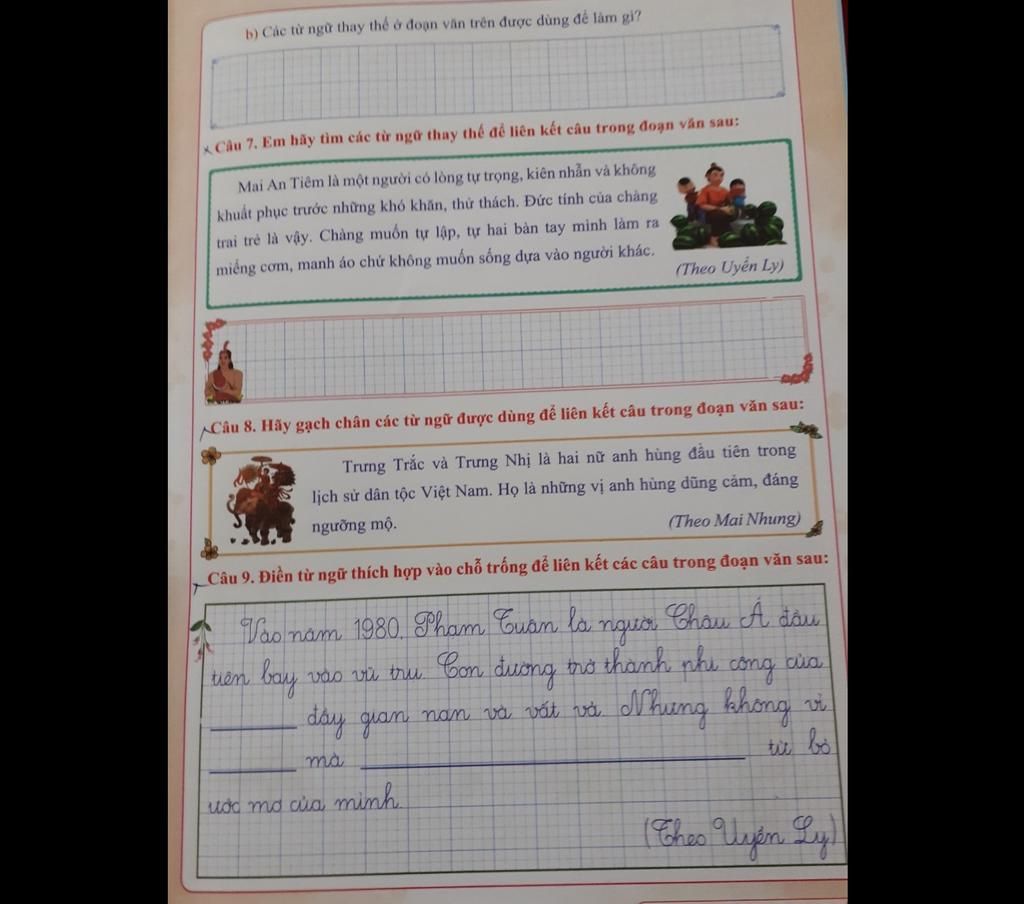 b) Các từ ngữ thay thế ở đoạn văn trên được dùng để làm gì?
Câu 7. Em hãy tìm các từ ngữ thay thế để liên kết câu trong đoạn văn sau:
Mai An Tiêm là một người có lòng tự trọng, kiên nhẫn và không
khuất phục trước những khó khăn, thử thách. Đức tính của chàng
trai trẻ là vậy. Chàng muốn tự lập, tự hai bàn tay mình làm ra
miếng cơm, manh áo chứ không muốn sống dựa vào người khác.
(Theo Uyển Ly)
Câu 8. Hãy gạch chân các từ ngữ được dùng để liên kết câu trong đoạn văn sau:
Trưng Trắc và Trưng Nhị là hai nữ anh hùng đầu tiên trong
lịch sử dân tộc Việt Nam. Họ là những vị anh hùng dũng cảm, đáng
ngưỡng mộ.
(Theo Mai Nhung)
Câu 9. Điền từ ngữ thích hợp vào chỗ trống để liên kết các câu trong đoạn văn sau:
Vào năm 1980, Phạm Tuân là người Châu Á đầu
tiên bay vào vũ trụ. Con đường trở thành phi công của
________ đầy gian nan và vất vả. Nhưng không vì
________ mà ____________________________________ từ bỏ
ước mơ của mình.
(Theo Uyển Ly)